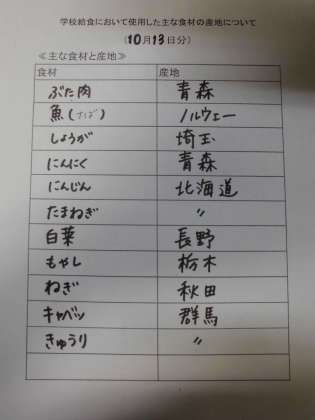 学校給食において使用した主な食材の産地について
(10月13日分)
≪主な食材と産地≫
食材 産地
ぶた肉 青森
魚(さば) ノルウェー
しょうが 埼玉
にんにく 青森
にんじん 北海道
たまねぎ 〃
白菜 長野
もやし 栃木
ねぎ 秋田
キャベツ 群馬
きゅうり 〃